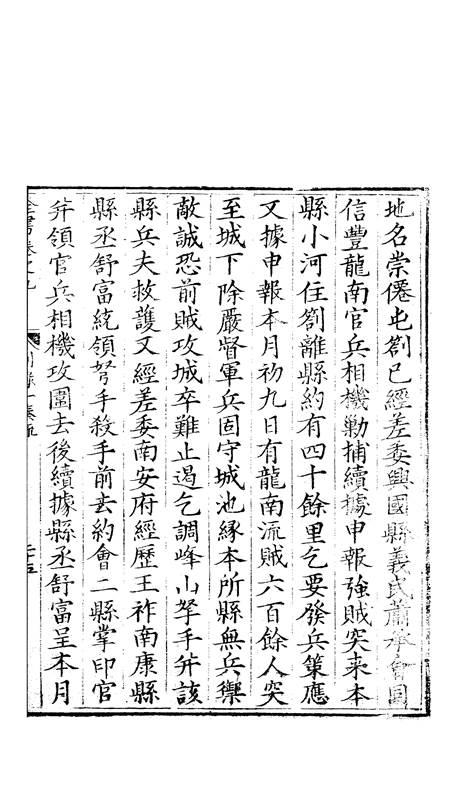 地名崇僊屯劄已經差委興國縣義民蕭承會同
信豐龍南官兵相機勦捕續據申報強賊突来本
縣小河住劄離縣約有四十餘里乞要發兵策應
又據申報本月初九日有龍南流賊六百餘人突
至城下除嚴督軍兵固守城池緣本所縣無兵禦
敵誠恐前賊攻城卒難止遏乞調峰山弩手并該
縣兵夫救護又經差委南安府經歷王祚南康縣
縣丞舒富統領弩手殺手前去約會二縣掌印官
并領官兵相機攻圍去後續據縣丞舒富呈本月
全書卷之九
別錄一奏疏